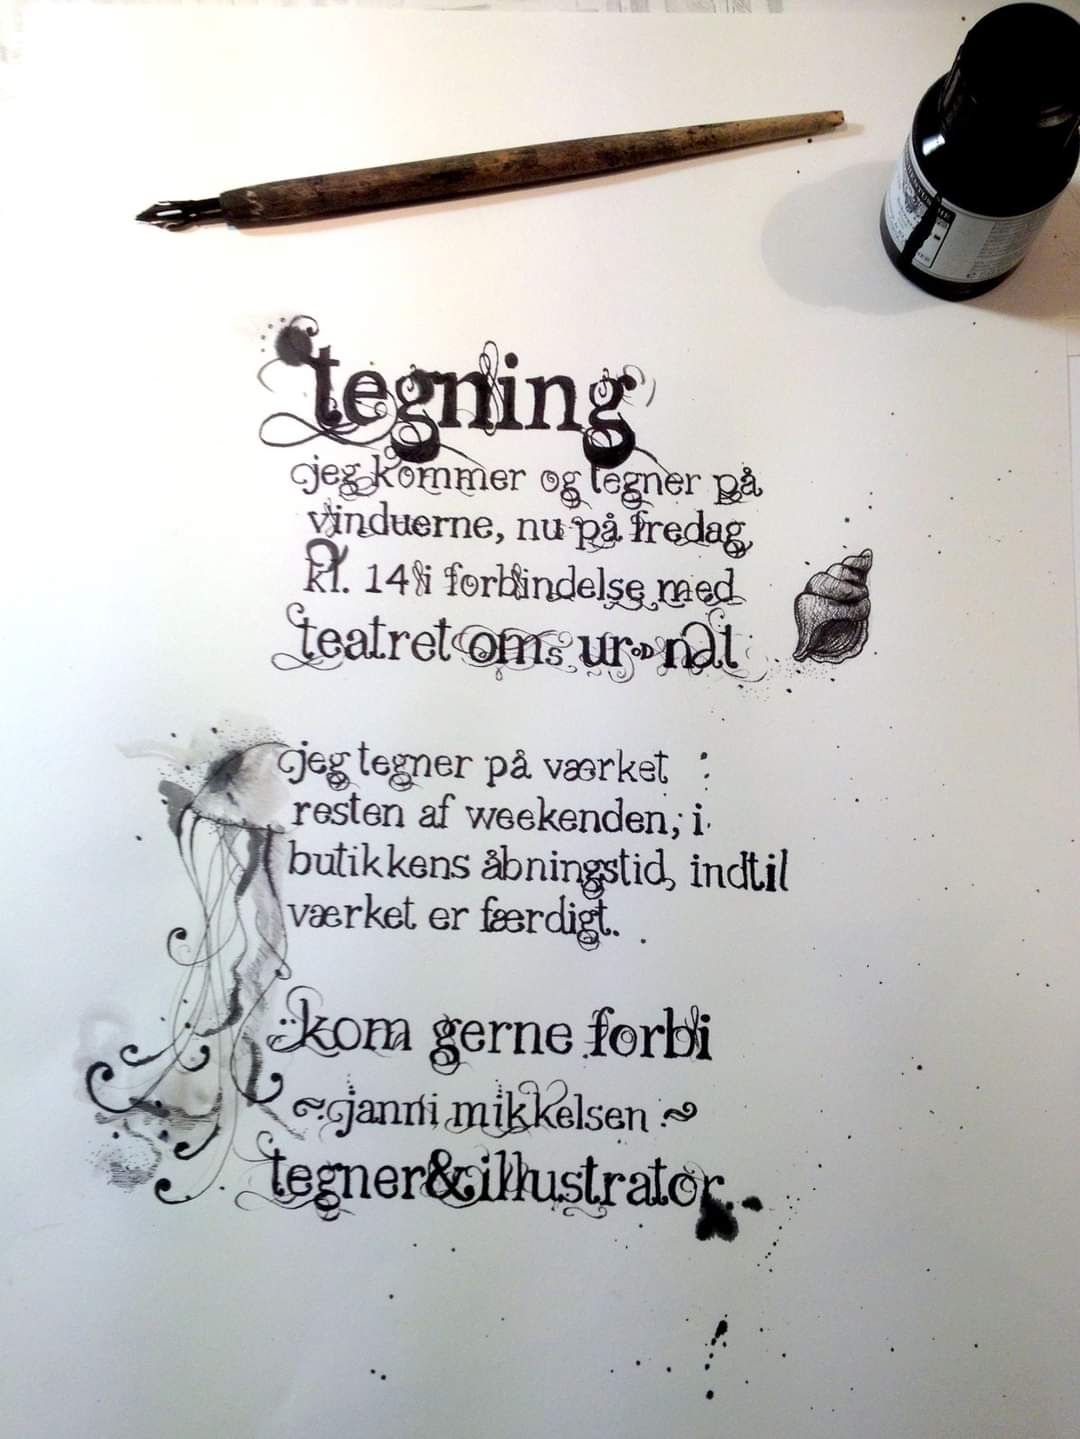 tegning
jeg kommer og tegner på
vinduerne, nu på fredag
kl. 14 i forbindelse med
teatret oms
jeg tegner på værket
resten af weekenden, i
butikkens åbningstid, indtil
værket er færdigt.
kom gerne forbi
~janni mikkelsen~
tegner&illustrator